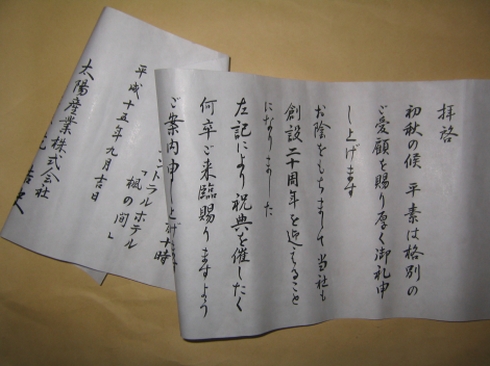 拝啓
初秋の候 平素は格別の
ご愛顧を賜り厚く御礼申
し上げます
お陰をもちまして当社も
創設二十周年を迎えること
になりました
左記により祝典を催したく
何卒ご来臨賜りますよう
ご案内申し上げます
十時
ントラルホテル
「楓の間」
平成十五年九月吉日
太陽産業株式会社